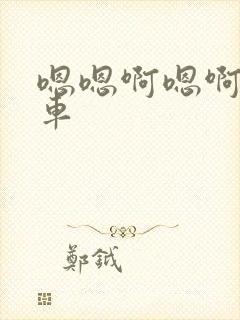 嗯嗯啊嗯啊
車
鄭鉞